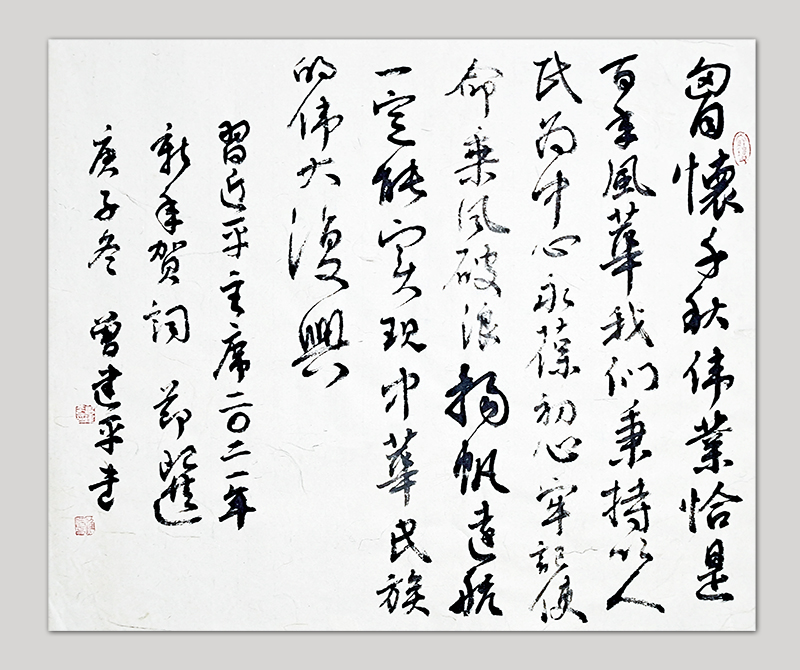 胷懷千秋伟業恰是
百年風華我们秉持以人
民为中心永葆初心牢記使
命乘风破浪揚帆遠航
一定能实现中華民族
的伟大復興
習近平主席二〇二一年
新年贺詞 節選
庚子冬 曾建平书